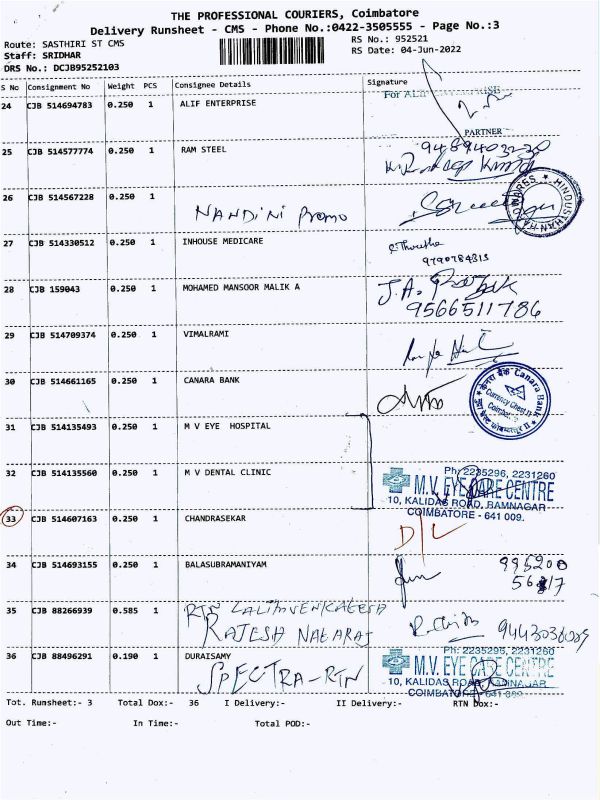 THE PROFESSIONAL COURIERS, Coimbatore
Delivery Runsheet - CMS - Phone No:0422-3505555 - Page No.:3
Route: SASTHIRI ST CMS
RS No.: 952521
Staff: SRIDHAR
RS Date: 04-Jun-2022
DRS No.: DCJB95252103
S No Consignment No Weight PCS Consignee Details Signature
24 CJB 514694783 0.250 1 ALIF ENTERPRISE
For ALIF ENTERPRISE
PARTNER
25 CJB 514577774 0.250 1 RAM STEEL
26 CJB 514567228 0.250 1 NANDINI Promo
HINDUSTHAN HARDWARES
27 CJB 514330512 0.250 1 INHOUSE MEDICARE
9790784313
28 CJB 159043 0.250 1 MOHAMED MANSOOR MALIK A
J.A.
9566511786
29 CJB 514709374 0.250 1 VIMALRAMI
30 CJB 514661165 0.250 1 CANARA BANK
केनरा बैंक Canara Bank
Currency Chest II
Coimbatore
31 CJB 514135493 0.250 1 M V EYE HOSPITAL
32 CJB 514135560 0.250 1 M V DENTAL CLINIC
Ph: 2235296, 2231260
M.V. EYE CARE CENTRE
10, KALIDAS ROAD, RAMNAGAR
COIMBATORE - 641 009.
33 CJB 514607163 0.250 1 CHANDRASEKAR
D/L
34 CJB 514693155 0.250 1 BALASUBRAMANIYAM
35 CJB 88266939 0.585 1 RTN LALITHVENKATESH
RAJESH NATARAJ
36 CJB 88496291 0.190 1 DURAISAMY
SPECTRA-RTN
Ph: 2235296, 2231260
M.V. EYE CARE CENTRE
10, KALIDAS ROAD, RAMNAGAR
COIMBATORE - 641 009
Tot. Runsheet:- 3 Total Dox:- 36 I Delivery:- II Delivery:- RTN Dox:-
Out Time:- In Time:- Total POD:-